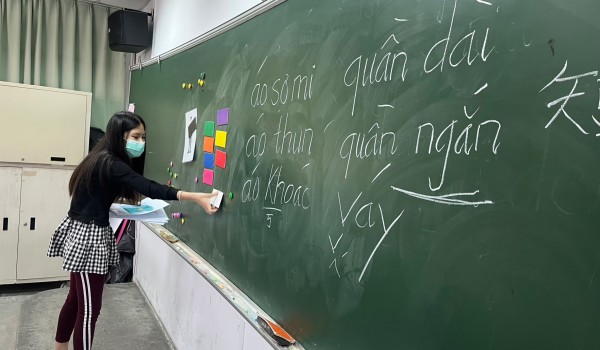 áo sơ mi
áo thun
áo Khoác
5
quần dài
quần ngắn
Váy
X-